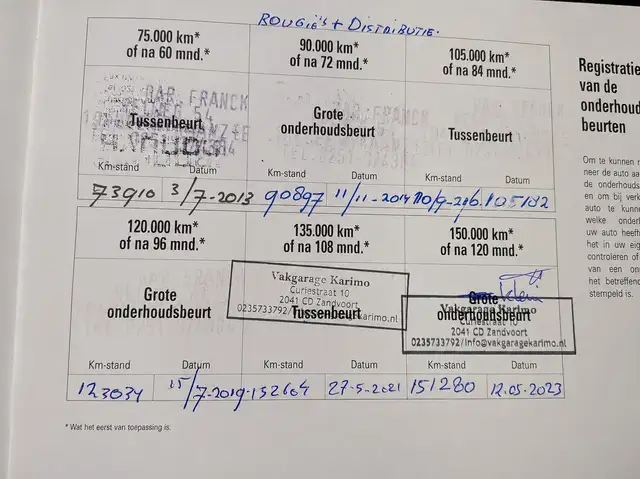 BOUGIE'S + DISTRIBUTIE.
75.000 km*
of na 60 mnd.*
90.000 km*
of na 72 mnd.*
105.000 km*
of na 84 mnd.*
DAR. FRANCK
Tussenbeurt
Grote
onderhoudsbeurt
Tussenbeurt
Km-stand Datum Km-stand Datum Km-stand Datum
73910 3/7-2013 90897 11/11-2014 105182
120.000 km*
of na 96 mnd.*
135.000 km*
of na 108 mnd.*
150.000 km*
of na 120 mnd.*
Grote
onderhoudsbeurt
Vakgarage Karimo
Curiestraat 10
2041 CD Zandvoort
0235733792/
karimo.nl
Tussenbeurt
Klein
Grote
onderhoudsbeurt
Vakgarage Karimo
Curiestraat 10
2041 CD Zandvoort
0235733792/info@vakgaragekarimo.nl
Km-stand Datum Km-stand Datum Km-stand Datum
123034 15/7-2019 132604 27-5-2021 151280 12.05-2023
* Wat het eerst van toepassing is.
Registratie
van de
onderhoud
beurten
Om te kunnen
neer de auto aa
de onderhouds
en om bij verk
auto te kunne
welke onderh
uw auto heeft
het in uw eig
controleren of
van een ond
het betreffend
stempeld is.